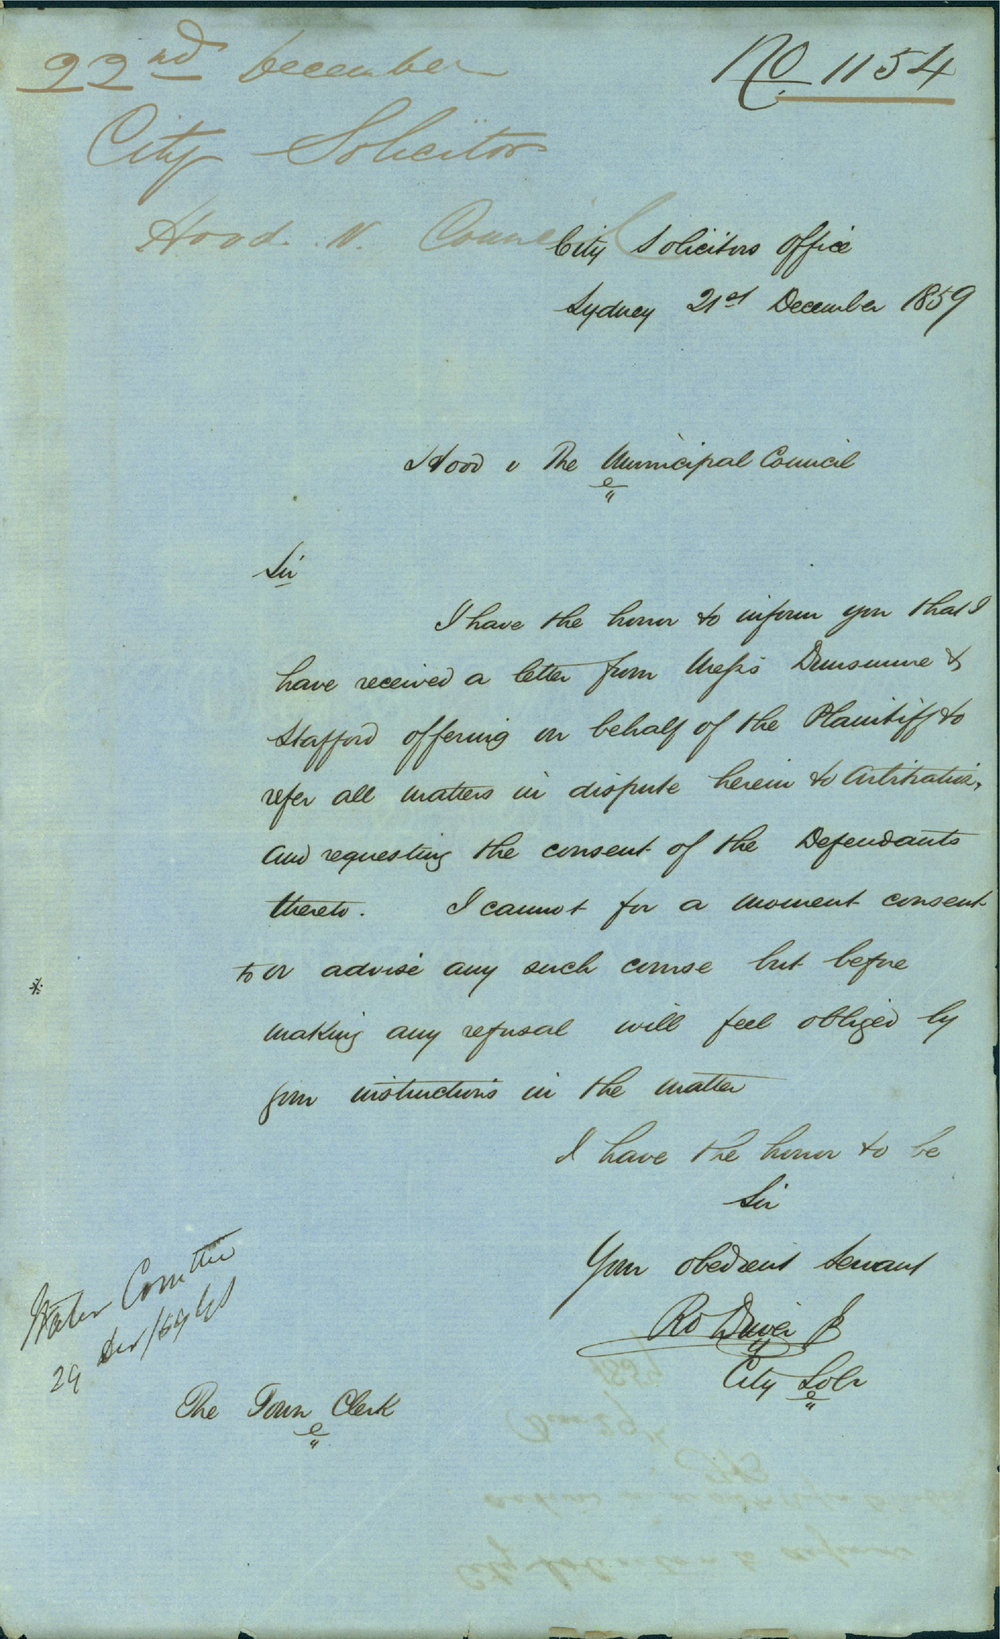 22nd December
No 1154
City Solicitor
Hood v. Council
City Solicitors Office
Sydney 21st December 1859
Hood v The Municipal Council
Sir
I have the honor to inform you that I
have received a letter from Messrs Dunsmure &
Stafford offering on behalf of the Plaintiff to
refer all matters in dispute herein to Arbitration,
and requesting the consent of the Defendants
thereto. I cannot for a moment consent
to or advise any such course but before
making any refusal will feel obliged by
your instructions in the matter
I have the honor to be
Sir
Your obedient Servant
Ro Driver Jr
City Solr
Water Comttee
29 Dec/59
The Town Clerk